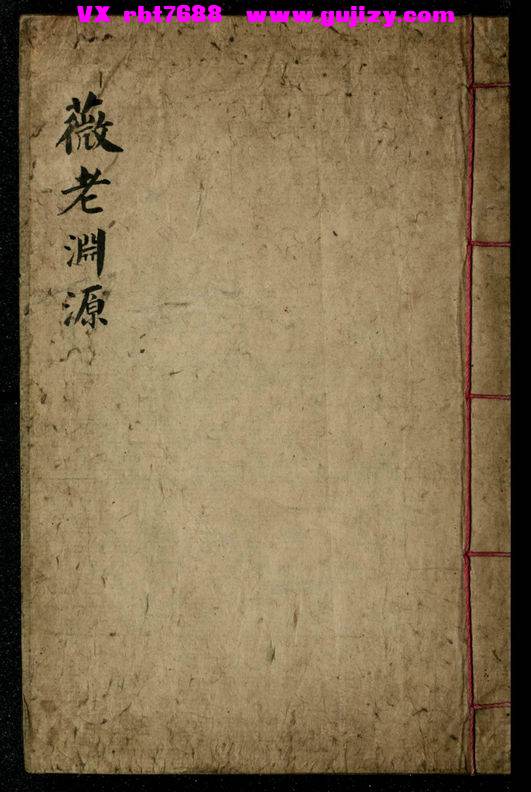 VX rbt7688 www.gujizy.com
薇老淵源